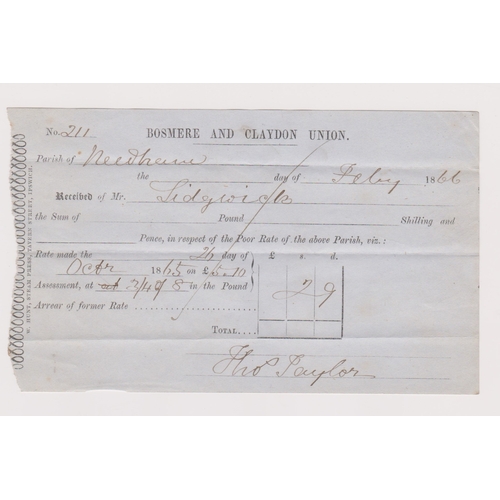 No. 211 BOSMERE AND CLAYDON UNION.
Parish of Needham
the day of Feby 1866
Received of Mr. Sidgwick
the Sum of Pound Shilling and
Pence, in respect of the Poor Rate of the above Parish, viz.:
Rate made the day of £ s. d.
Octr 1865 on £ 10
Assessment, at in the Pound 2 9
Arrear of former Rate
TOTAL
Thos Taylor
W. HUNT, STEAM PRESS, TAVERN STREET, IPSWICH.